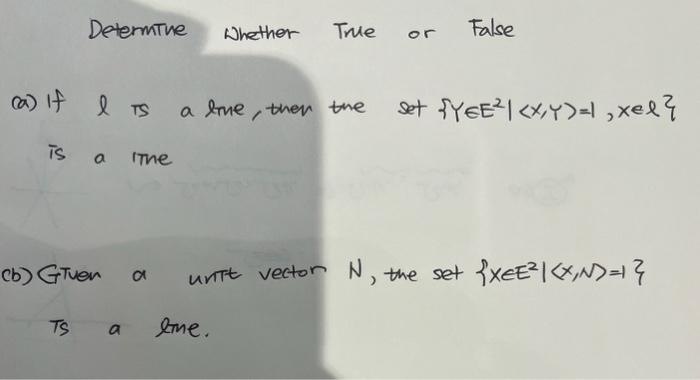 Determine Whether True or False
(a) If l is a line, then the set {Y∈E²|<X,Y>=1, x∈l}
is a line
(b) Given a unit vector N, the set {X∈E²|<X,N>=1}
is a line.